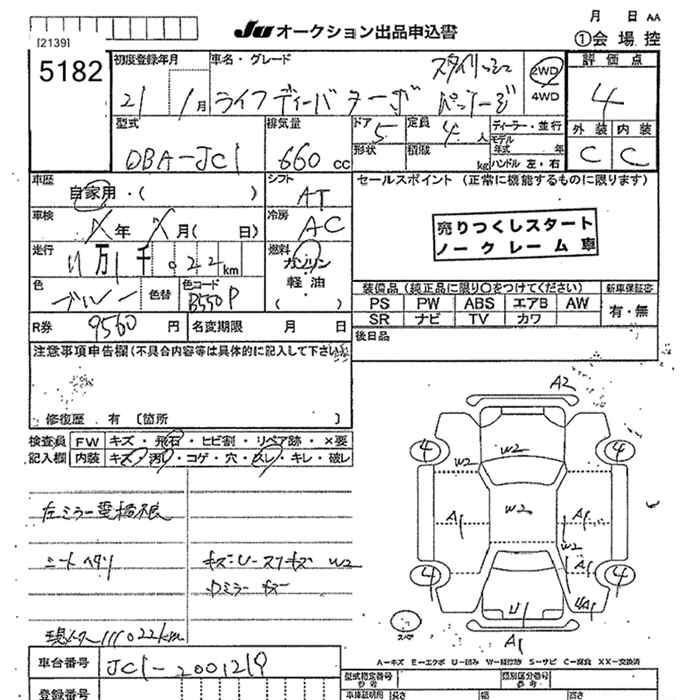 月 日 AA
[2139]
JU オークション出品申込書
①会場控
5182
初度登録年月
21 1月
車名・グレード
ライフ ディーバ ターボ
2WD
4WD
評価点
4
外装 内装
C C
型式
DBA-JC1
排気量
660 cc
ドア
5
形状
定員
4人
積載
kg
ディーラー・並行
モデル
年式 年
ハンドル 左・右
車歴
自家用・( )
シフト
AT
セールスポイント (正常に機能するものに限ります)
売りつくしスタート
ノークレーム車
車検
年 月( 日)
冷房
AC
走行
11万1千022km
燃料
ガソリン
軽油
( )
色
ブルー
色替
色コード
B550P
装備品 (純正品に限り○をつけてください)
新車保証書
PS PW ABS エアB AW
SR ナビ TV カワ
有・無
R券 9560 円
名変期限 月 日
後日品
注意事項申告欄(不具合内容等は具体的に記入して下さい)
修復歴 有 [箇所 ]
検査員
記入欄
FW キズ・飛石・ヒビ割・リペア跡・×要
内装 キズ・汚レ・コゲ・穴・スレ・キレ・破レ
左ミラー電格不良
シートヘタリ
キズ・U・スリキズ W2
ミラーキズ
現メーター111022km
A2
4 4
W2 W2
A1 W2 A1
W2
A1
4 4
U1 4A1
スペア
A1
A-キズ E-エクボ U-凹み W-補修跡 S-サビ C-腐食 XX-交換済
車台番号
JC1-2001219
登録番号
型式指定番号
類別区分番号
車庫証明用
長さ
幅
高さ